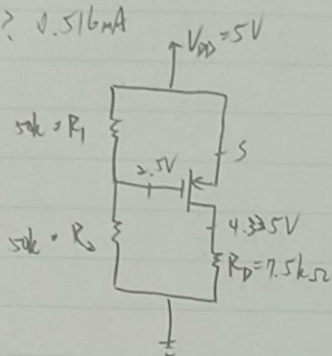 ? 0.516mA
V_DD = 5V
50k = R₁
S
2.5V
4.335V
50k = R₂
R_D = 7.5kΩ